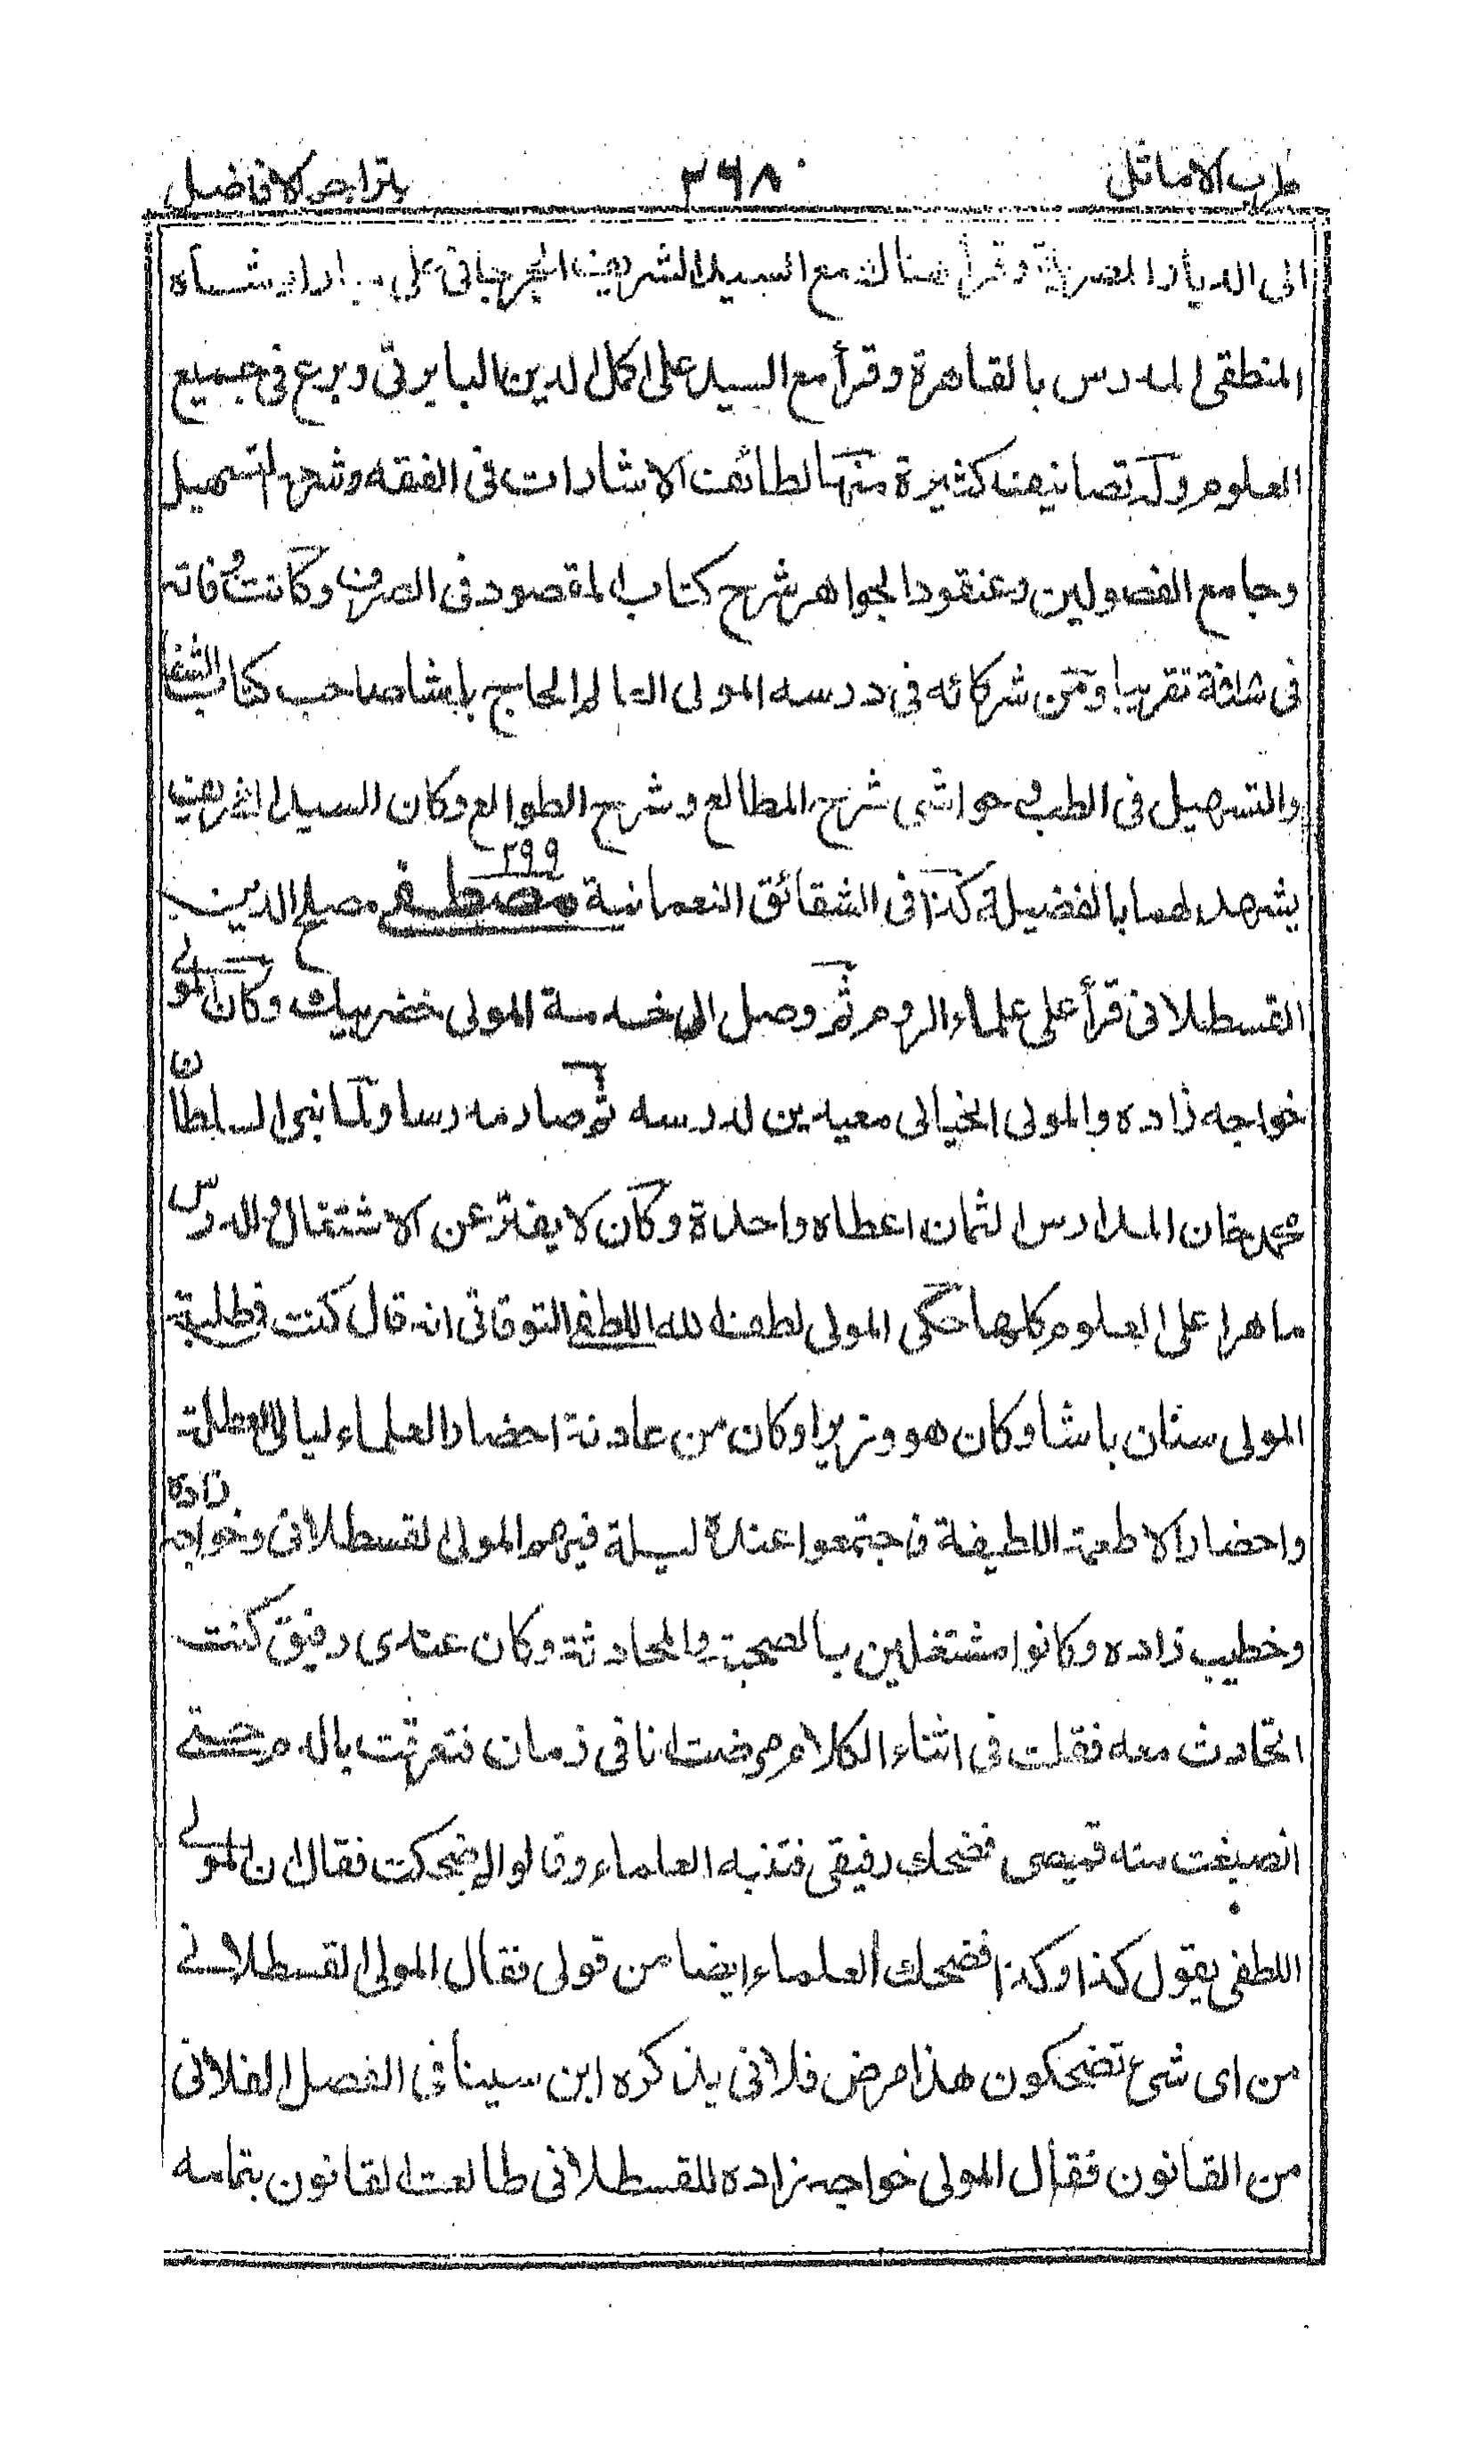 طرب الاماثل ٣٦٨ بتراجم الافاضل
الى الديار المصرية وقرأ هناك مع السيد الشريف الجرجانى على مباراد شاه
المنطقى المدرس بالقاهرة وقرأ مع السيد على اكمل الدين البابرتى وبرع فى جميع
العلوم وله تصانيف كثيرة منها لطائف الاشارات فى الفقه وشرحه التسهيل
وجامع الفصولين وعنقود الجواهر شرح كتاب المقصود فى الصرف وكانت وفاته
فى تقريبا ومن شركائه فى درسه المولى العالم الحاج باشا صاحب كتاب الشفا
والتسهيل فى الطب حواشى شرح المطالع وشرح الطوالع وكان السيد الشريف
يشهد لهما بالفضيلة كذا فى الشقائق النعمانية ٢٩٩ مصطفى مصلح الدين
القسطلانى قرأ على علماء الروم ثم وصل الى خدمة المولى خضر بيك وكان المولى
خواجه زاده والمولى الخيالى معيدين لدرسه ثم صار مدرسا ولما بنى السلطان
محمد خان المدارس الثمان اعطاه واحدة وكان لا يفتر عن الاشتغال والدرس
ماهرا على العلوم كلها حكى المولى لطف الله اللطفى التوقاتى انه قال كنت فى طلبة
المولى سنان باشا وكان هو وزيرا وكان من عادته احضار العلماء ليالى العطلة
واحضار الاطعمة اللطيفة فاجتمعوا عنده ليلة فيهم المولى القسطلانى وخواجه زاده
وخطيب زاده وكانوا مشتغلين بالصحبة والمحادثة وكان عندى رفيق كنت
اتحادث معه فقلت فى اثناء الكلام مرضت انا فى زمان فتعرقت بالدم حتى
انصبغت منه قميصى فضحك رفيقى فتنبه العلماء وقالوا لم ضحكت فقال ان المولى
اللطفى يقول كذا وكذا فضحك العلماء ايضا من قولى فقال المولى القسطلانى
من اى شىء تضحكون هذا مرض فلانى يذكره ابن سينا فى الفصل الفلانى
من القانون فقال المولى خواجه زاده للقسطلانى طالعت القانون بتمامه